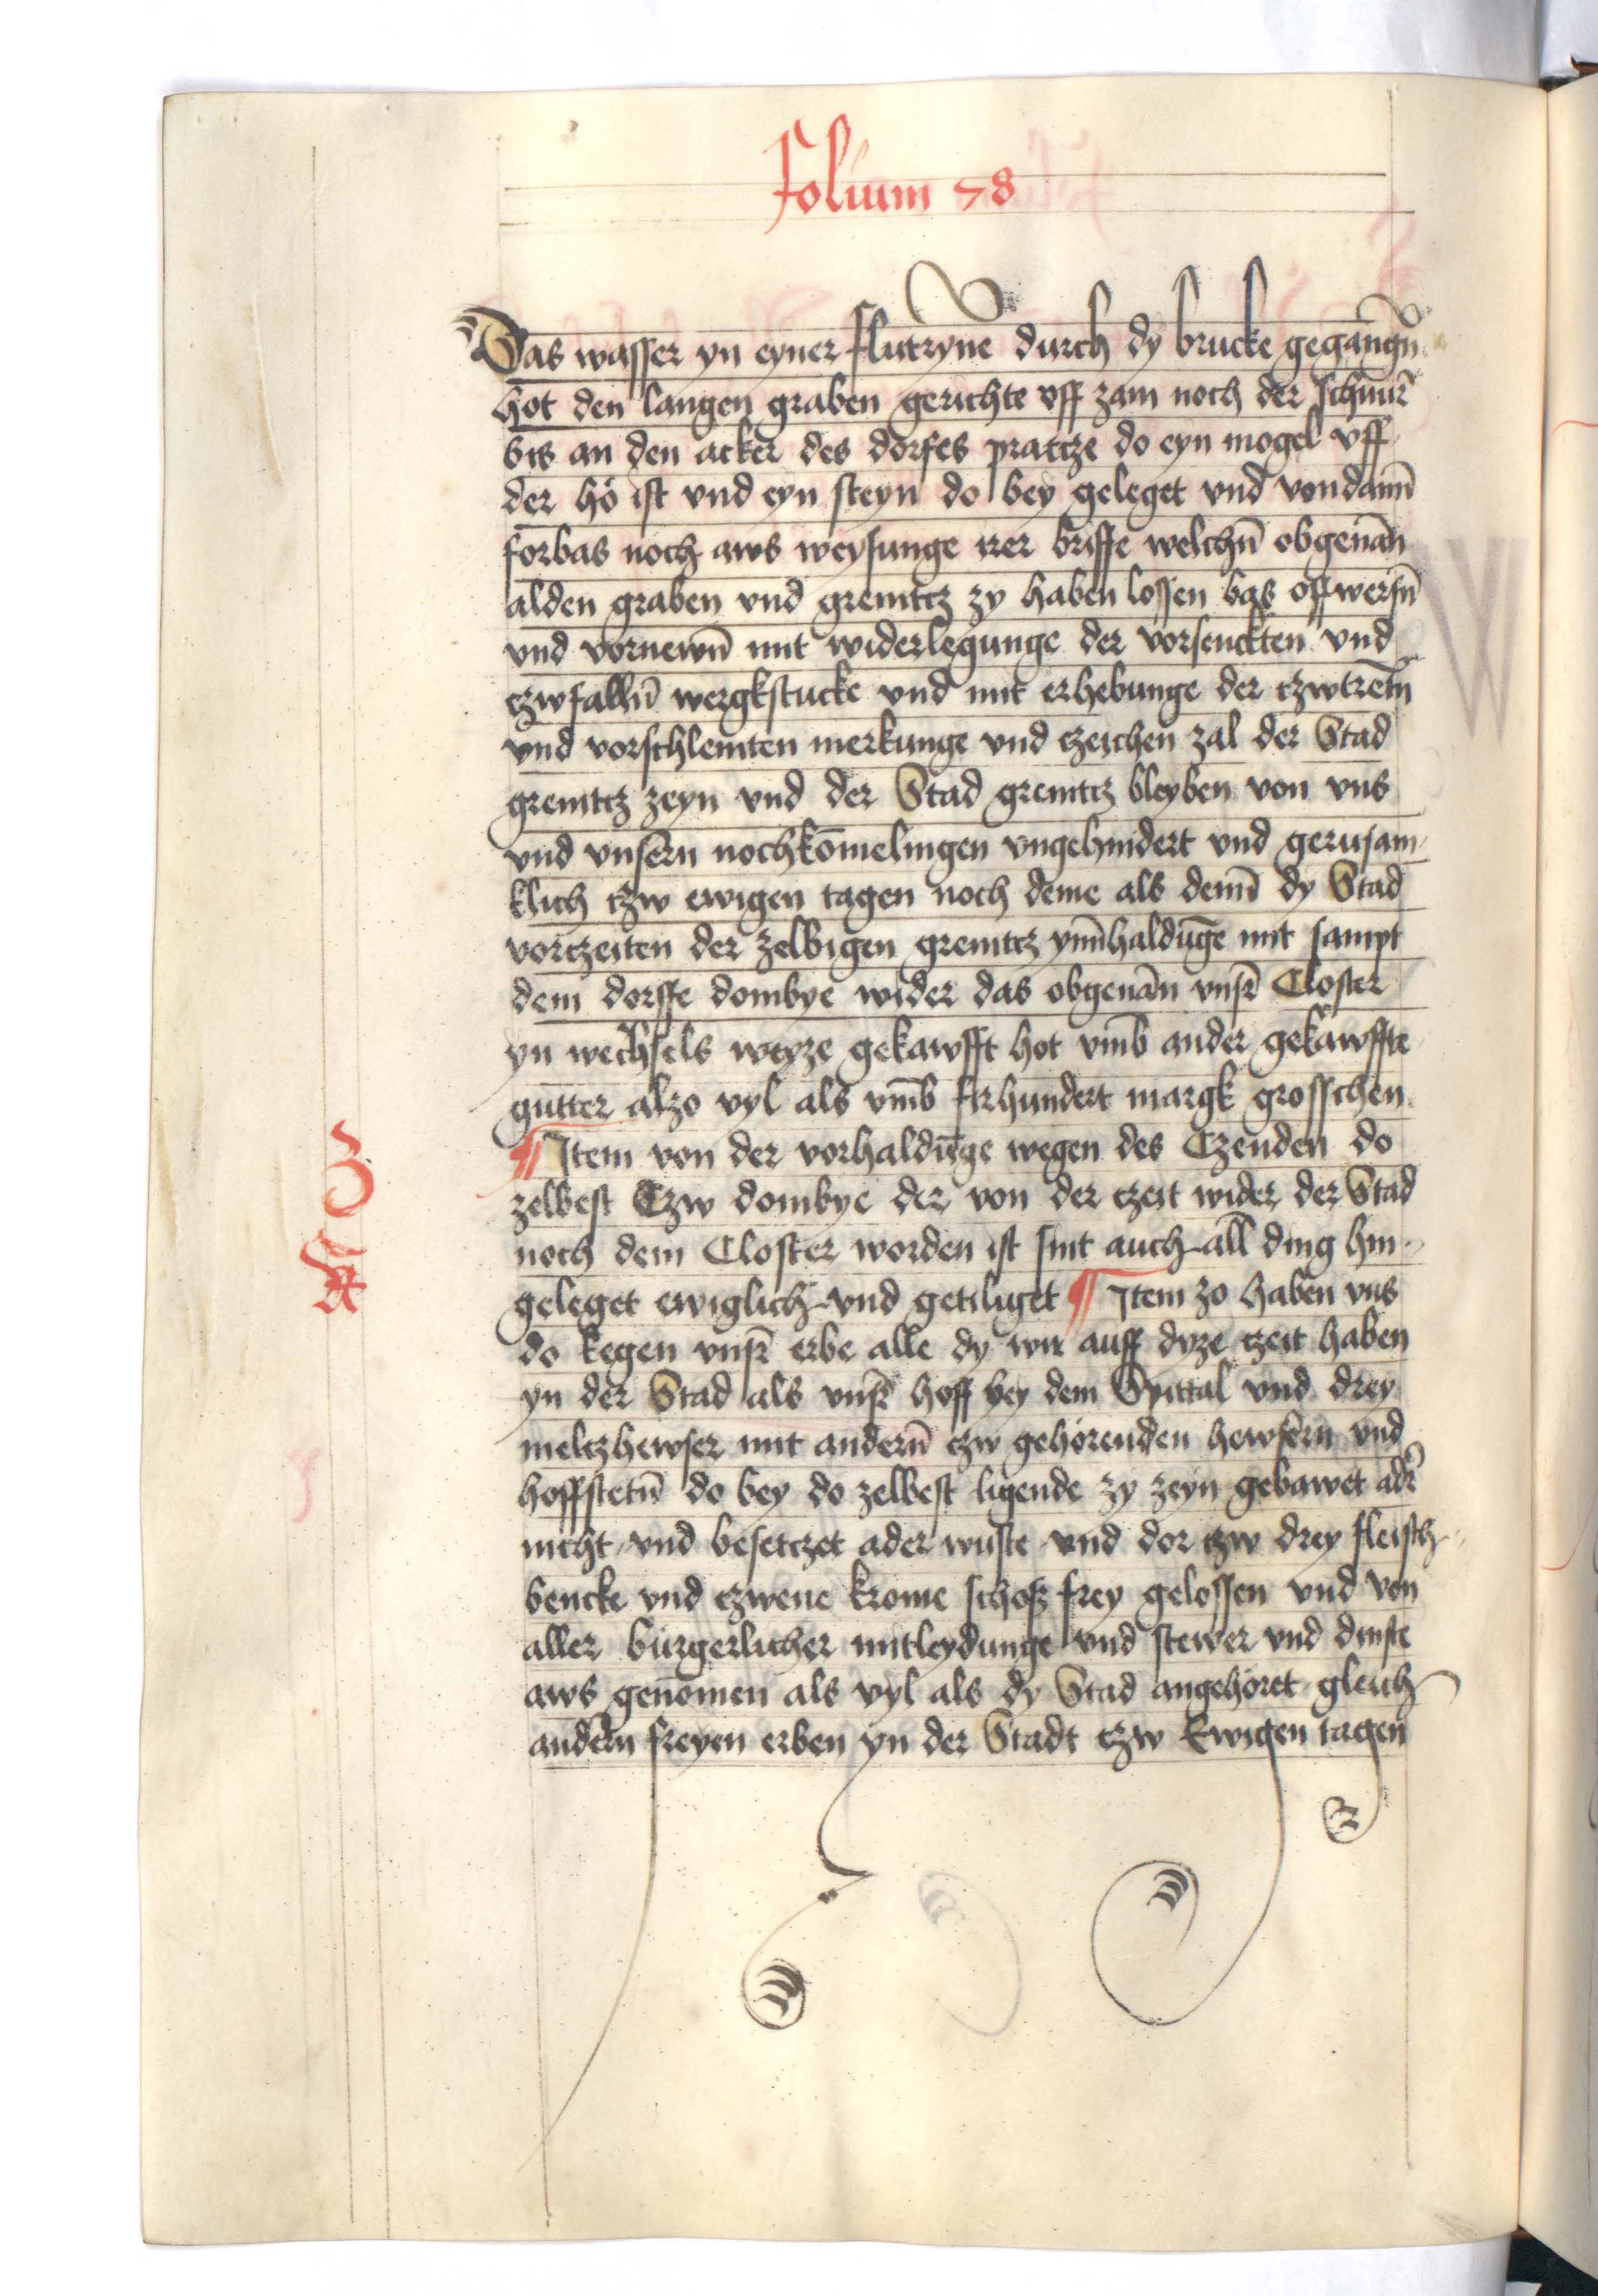 Folium 78
Das wasser yn eyner flutryne durch dy brucke gegangn̄
hot den langen graben gerichte vff zam noch der schnur̄
bis an den acker des dorfes pratcze do eyn mogel vff
der hö ist vnd eyn steyn do bey geleget vnd vondann̄
forbas noch aws weysunge irer briffe welchn̄ obgenān
alden graben vnd grenitcz zy haben lossen bas offwerfn̄
vnd vornewn̄ mit widerlegunge der vorsenckten vnd
czwfalln̄ wergkstucke vnd mit erhebunge der czwtretn̄
vnd vorschlemten merkunge vnd czeichen zal der Stad
grenitcz zeyn vnd der Stad grenitcz bleyben von vns
vnd vnsern nochkōmelingen vngehindert vnd gerusam
klich czw ewigen tagen noch deme als denn̄ dy Stad
vorczeiten der zelbigen grenitcz ynn̄haldūge mit sampt
dem dorffe dombye wider das obgenān vnsr̄ Closter
yn wechsels weyze gekawfft hot vmb̄ ander gekawffte
gutter alzo vyl als vmb̄ firhundert margk grosschen
¶ Item von der vorhaldūge wegen des Czenden do
zelbest Czw dombye der von der czeit wider der Stad
noch dem Closter worden ist sint auch all̄ ding hin
geleget ewiglich vnd getiliget ¶ Item zo haben vns
do kegen vnsr̄ erbe alle dy wir auff dyze czeit haben
yn der Stad als vnsr̄ hoff bey dem Spittal vnd drey
meltczhewser mit andern̄ czw gehörenden hewsern vnd
hoffstetn̄ do bey do zelbest ligende zy zeyn gebawet adr̄
nicht vnd besetczet ader wuste vnd dor czw drey fleisch
bencke vnd czwene krome schosz frey gelossen vnd von
aller burgerlicher mitleydunge vnd stewer vnd dinste
aws genōmen als vyl als dy Stad angehöret gleich
andern freyen erben yn der Stadt czw Ewigen tagen